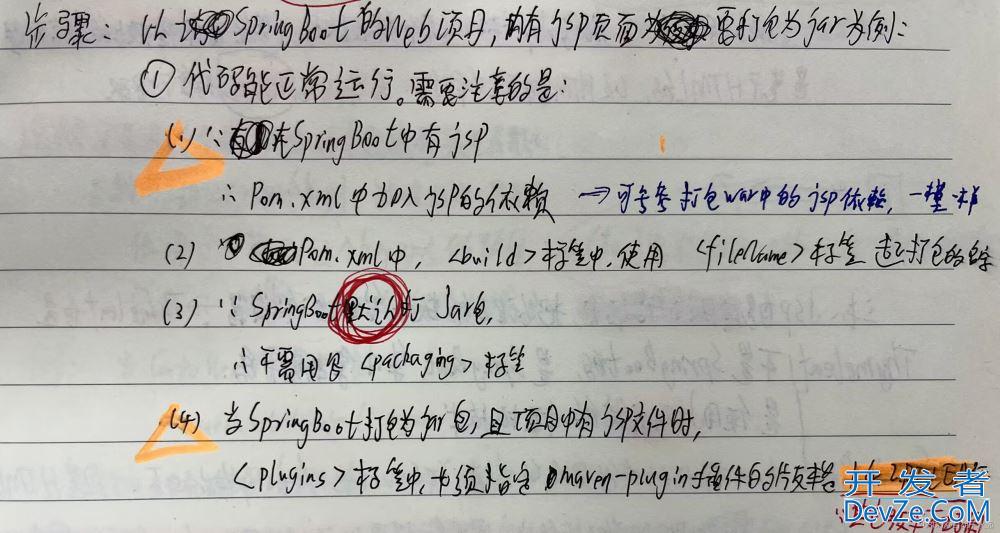 步骤：以SpringBoot的Web项目，内有jsp页面需打包为jar为例：
① 代码能正常运行。需要注意的是：
(1) ∵在SpringBoot中有jsp
∴ Pom.xml中加入jsp的依赖 → 可参考打包war中的jsp依赖，一模一样
(2) Pom.xml中，<build>标签中，使用 <fileName>标签 起打包的名字
(3) ∵SpringBoot默认打Jar包，
∴不需用写<packaging>标签
(4) 当SpringBoot打包为jar包，且项目中有jsp文件时，
<plugins>标签中，必须指定maven-plugin插件的版本
开发者
DevZe.CoM